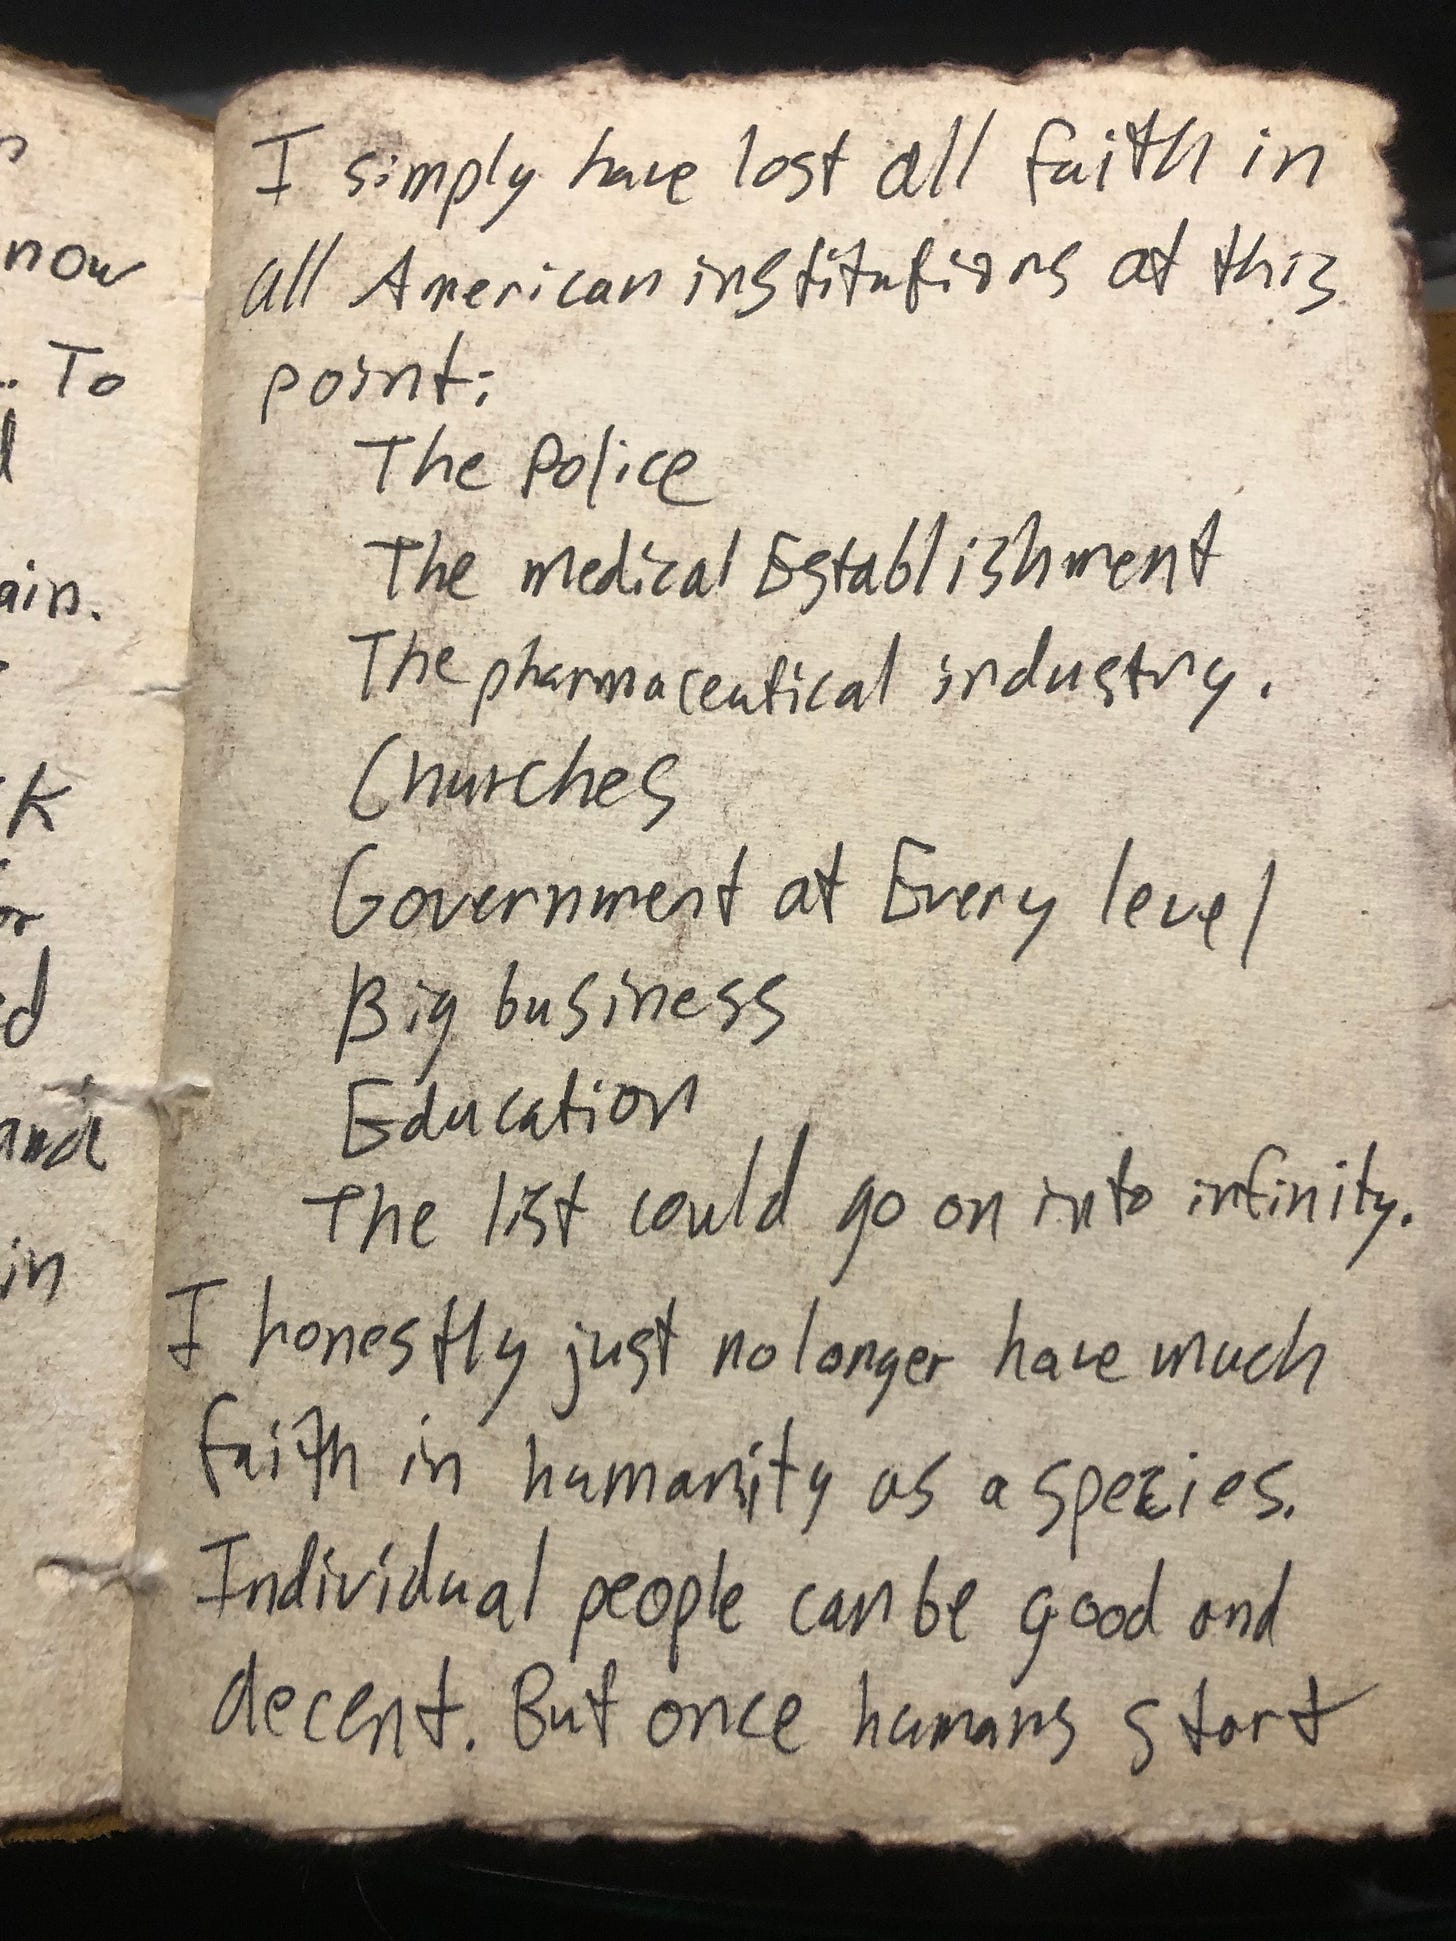 now
To
ain.
K
or
d
and
in
I simply have lost all faith in
all American institutions at this
point:
The Police
The medical Establishment
The pharmaceutical industry.
Churches
Government at Every level
Big business
Education
The list could go on into infinity.
I honestly just no longer have much
faith in humanity as a species.
Individual people can be good and
decent. But once humans start